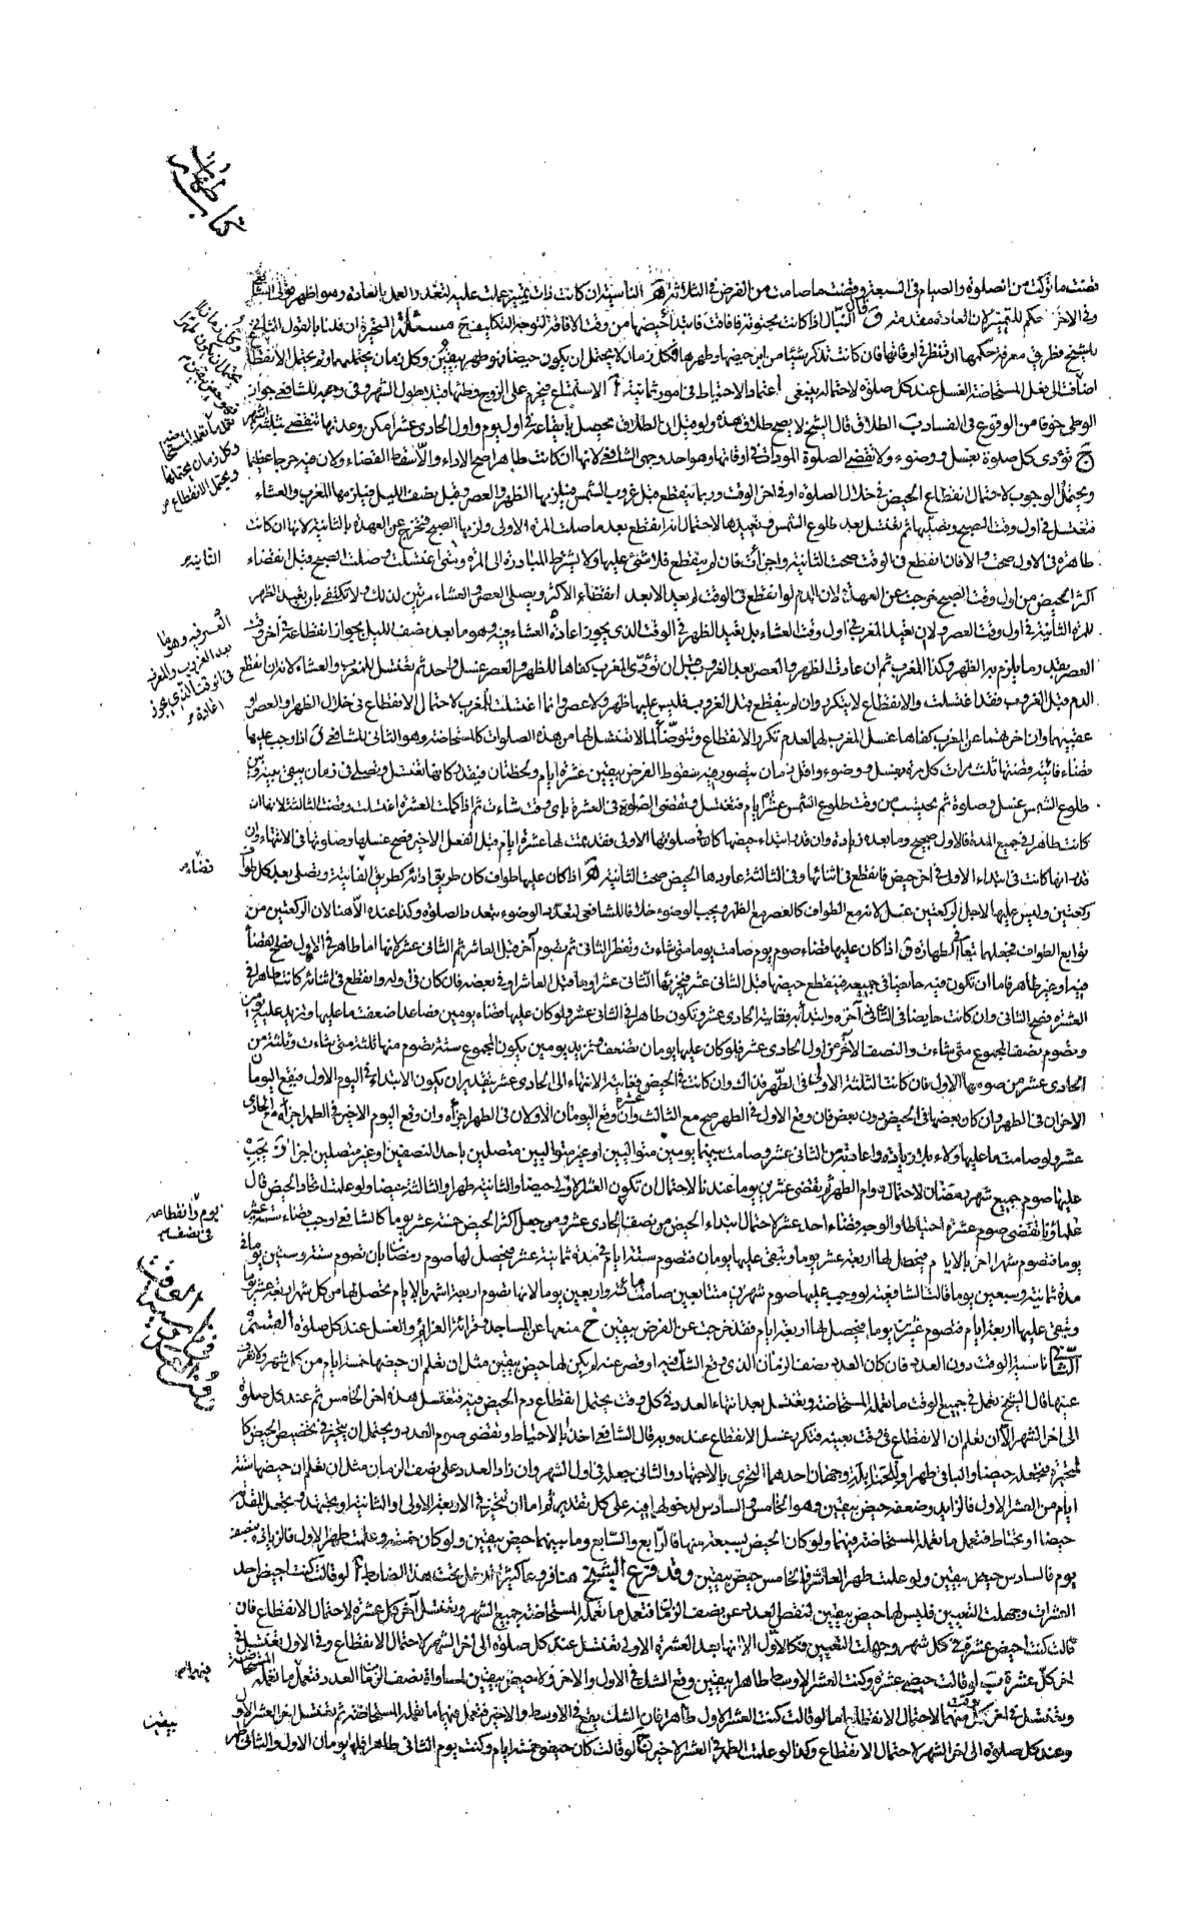 كتاب طهارت
قضت ما تركت من الصلوة والصيام في السبعة وقضت ما صامت من الفرض في الثلاثة الناسية ان كانت ذات تمييز عملت عليه لتعذر العمل بالعادة وهو اظهر قولي الشافعي
وفي الاخر حكم للتمييز لان العادة مقدمة قال اذا كانت مجنونة فافاقت فابتداء حيضها من وقت الافاقة لتوجه التكليف ح مسئلة المتحيرة ان قلنا بالقول الثاني
للشيخ فطريق معرفة حكمها ان تنظر في اوقاتها فان كانت تذكر شيئا من ايام حيضها وطهرها فكل زمان لا يحتمل ان يكون حيضا فهو طهر بيقين وكل زمان يحتملهما ولم يحتمل الانقطاع
اضافت الى فعل المستحاضة الغسل عند كل صلوة لاحتماله ينبغي اعتماد الاحتياط في امور ثمانية آ الاستمتاع فيحرم على الزوج وطئها ابدا طول الشهر وفي وجه للشافعي جوازه
الوطي خوفا من الوقوع في الفساد ب الطلاق قال الشيخ لا يصح طلاق هذه ولو قيل ان الطلاق يحصل بايقاعه في اول يوم واول الحادي عشر امكن وعدتها تنقضي بثلثة اشهر
ج تؤدي كل صلوة بغسل ووضوء ولا تقضي الصلوة المؤداة في اوقاتها وهو احد وجهي الشافعي لانها ان كانت طاهرا صح الاداء والا سقط القضاء ولان فيه حرجا عظيما
ويحتمل الوجوب لاحتمال انقطاع الحيض في خلال الصلوة او في اخر الوقت وربما ينقطع قبل غروب الشمس فيلزمها الظهر والعصر وقبل نصف الليل فيلزمها المغرب والعشاء
فتغتسل في اول وقت الصبح وتصليها ثم تغتسل بعد طلوع الشمس وتعيدها لاحتمال انه انقطع بعد ما صلت المرة الاولى ولزمها الصبح فتخرج عن العهدة بالثانية لانها ان كانت
طاهرة في الاول صحت والا فان انقطع في الوقت صحت الثانية واجزأت فان لم ينقطع فلا شئ عليها ولا يشترط المبادرة الى المرة الثانية ومتى اغتسلت وصلت الصبح قبل انقضاء
اكثر الحيض من اول وقت الصبح خرجت عن العهدة لان الدم لو انقطع في الوقت لم يعد الا بعد انقضاء الاكثر ويصلي العصر والعشاء مرتين لذلك ولا تكتفي بان يعيد الظهر
للمرة الثانية في اول وقت العصر ولا بان يعيد المغرب في اول وقت العشاء بل يعيد الظهر في الوقت الذي يجوز اعادة العشاء فيه وهو ما بعد نصف الليل لجواز انقطاعه في اخر وقت
العصر بقدر ما يلزم به الظهر وكذا المغرب ثم ان عادت الظهر والعصر بعد الغروب قبل ان تؤدي المغرب كفاها للظهر والعصر غسل واحد ثم تغتسل للمغرب والعشاء لانه ان انقطع
الدم قبل الغروب فقد اغتسلت والانقطاع لا يتكرر وان لم ينقطع قبل الغروب فليس عليها ظهر ولا عصر وانما اغتسلت للمغرب لاحتمال الانقطاع في خلال الظهر والعصر او
عقيبهما وان اخرتهما عن المغرب كفاها غسل المغرب لهما لعدم تكرر الانقطاع وتتوضأ لما لا تغتسل لها من هذه الصلوات كالمستحاضة وهو الثاني للشافعي د اذا وجب عليها
قضاء فائتة قضتها ثلث مرات كل مرة بغسل ووضوء واقل زمان يتصور فيه سقوط الفرض بيقين عشرة ايام ولحظتان
طلوع الشمس غسل وصلوة ثم يحتسب من وقت طلوع الشمس عشرة ايام فتغتسل وتقضي الصلوة في العشرة باي وقت شاءت ثم اذا كملت العشرة اغتسلت وقضت الثالثة لانها ان
كانت طاهرا في جميع المدة فالاول صحيح وما بعده زيادة وان قدر ابتداء حيضها كان في صلوتها الاولى فقد تمت لها عشرة ايام قبل الفعل الاخير فصح غسلها وصلوتها في الانتهاء وان
قدر انها كانت في ابتداء الاولى في اخر حيض فانقطع في اثنائها وفي الثالثة عاودها الحيض صحت الثانية اذا كان عليها طواف كان طريق ادائه كطريق الفائتة وتصلي بعد كل طواف
ركعتين وليس عليها لاجل الركعتين غسل لانه مع الطواف كالعصر مع الظهر ويجب الوضوء خلافا للشافعي لتعدد الوضوء بتعدد الصلوة وكذا عنده الا هنا لان الركعتين من
توابع الطواف فيحصل لهما تبعا الطهارة و اذا كان عليها قضاء صوم يوم صامت يوما متى شاءت وتفطر الثاني ثم تصوم آخر قبل العاشر ثم الثاني عشر لانها اما طاهر في الاول فصح القضاء
فيه او غير طاهر فاما ان تكون فيه حائضا في جميعه فينقطع حيضها قبل الثاني عشر فيجزئها الثاني عشر او ما قبل العاشر او في بعضه فان كان في اوله وانقطع في اثنائه كانت طاهرا في
العشرة فصح الثاني وان كانت حايضا في الثاني في آخره وابتدأ به فغايته الحادي عشر وتكون طاهرا في الثاني عشر ولو كان عليها قضاء يومين فصاعدا ضعفت ما عليها وتزيد عليه يومين
وتصوم نصف المجموع متى شاءت والنصف الآخر من اول الحادي عشر فلو كان عليها يومان تضعف وتزيد يومين يكون المجموع ستة تصوم منها ثلثة متى شاءت وثلثة من
الحادي عشر من صومها الاول فان كانت الثلثة الاولى في الطهر فذاك وان كانت في الحيض فغايته الانتهاء الى الحادي عشر بتقدير ان يكون الابتداء في اليوم الاول فيقع اليوما
الاخران في الطهر وان كان بعضها في الحيض دون بعض فان وقع الاول في الطهر صح مع الثالث عشر وان وقع اليومان الاولان في الطهر اجزآه وان وقع اليوم الاخير في الطهر اجزأه مع الحادي
عشر ولو صامت ما عليها ولاء بلا زيادة واعادته من الثاني عشر وصامت بينهما يومين متواليين او غير متواليين متصلين باحد النصفين او غير متصلين اجزأ ز يجب
عليها صوم جميع شهر رمضان لاحتمال دوام الطهر ثم تقضي عشرين يوما عندنا لاحتمال ان تكون العشر الاولى حيضا والثانية طهرا والثالثة حيضا ولو علمت اتحاد الحيض قال
علماؤنا تقضي صوم عشرة احتياطا والوجه قضاء احد عشر لاحتمال ابتداء الحيض من نصف الحادي عشر ومن جعل اكثر الحيض خمسة عشر يوما كالشافعي اوجب قضاء ستة عشر
يوما فتصوم شهرا اخر بالايام فيحصل لها اربعة عشر يوما وتبقى عليها يومان فتصوم ستة ايام في مدة ثمانية عشر فيحصل لها صوم رمضان بان تصوم ستة وستين يوما في
مدة ثمانية وسبعين يوما قالت الشافعية لو وجب عليها صوم شهرين متتابعين صامت مائة واربعين يوما لانها تصوم اربعة اشهر بالايام يحصل لها من كل شهر اربعة عشر يوما
وتبقى عليها اربعة ايام فتصوم عشرين يوما فيحصل لها اربعة ايام فقد خرجت عن الفرض بيقين ح منعها عن المساجد وقرائة العزائم والغسل عند كل صلوة القسم
الثاني ناسية الوقت دون العدد فان كان العدد نصف الزمان الذي وقع الشك فيه او قصر عنه لم يكن لها حيض بيقين مثل ان تعلم ان حيضها خمسة ايام من كل شهر ولا تعرف
عينها قال الشيخ تعمل في جميع الوقت ما تعمله المستحاضة وتغتسل بعد انتهاء العدد في كل وقت يحتمل انقطاع دم الحيض فيه فتغتسل هذه اخر الخامس ثم عند كل صلوة
الى اخر الشهر الا ان تعلم ان الانقطاع في وقت بعينه فتكرر غسل الانقطاع عنده وبه قال الشافعي اخذا بالاحتياط وتقضي صوم العدد ويحتمل ان يتخير في تخصيص الحيض كا
لمتحيرة فتجعله حيضا والباقي طهرا وللحنابلة وجهان احدهما التحري بالاجتهاد والثاني جعله في اول الشهر وان زاد العدد على نصف الزمان مثل ان تعلم ان حيضها ستة
ايام من العشر الاول فالزايد وضعفه حيض بيقين وهو الخامس والسادس لدخولهما فيه على كل تقدير ثم اما ان تتخير في الاربعة الاولى او الثانية او تجتهد وتجعل المقدر
حيضا او تحتاط فتعمل ما تعمله المستحاضة فيهما ولو كان الحيض سبعة منها فالرابع والسابع وما بينهما حيض بيقين ولو كان خمسة وعلمت طهر الاول فالزيادة بنصف
يوم فالسادس حيض بيقين ولو علمت طهر العاشر فالخامس حيض بيقين وقد فرع الشيخ هنا فروعا كثيرة تدخل تحت هذا الضابط آ لو قالت كنت احيض احد
العشرات وجهلت التعيين فليس لها حيض بيقين لنقص العدد عن نصف الزمان فتعمل ما تعمله المستحاضة جميع الشهر وتغتسل آخر كل عشرة لاحتمال الانقطاع فان
قالت كنت احيض عشرة في كل شهر وجهلت التعيين فكالاول الا انها بعد العشرة الاولى تغتسل عند كل صلوة الى اخر الشهر لاحتمال الانقطاع وفي الاول تغتسل في
اخر كل عشرة ب لو قالت حيضي عشرة وكنت العشر الاوسط طاهرا بيقين وقع الشك في الاول والاخر ولا حيض بيقين لمساواة نصف الزمان العدد فتعمل ما تعمله المستحاضة
وتغتسل في اخر كل وقت منهما لاحتمال الانقطاع اما لو قالت كنت العشر الاول طاهرا فان الشك يقع في الاوسط والاخير فتعمل فيهما ما تفعله المستحاضة ثم تغتسل اخر العشر الاول
وعند كل صلوة الى اخر الشهر لاحتمال الانقطاع وكذا لو علمت الطهر في العشر الاخير ج لو قالت كان حيضي خمسة ايام وكنت يوم الثاني طاهرا فلها يومان الاول والثاني طهر
وكل زمان
يحتمل ان يكون
فيه ما تعمله المستحاضة
وكل زمان يحتملهما
ويحتمل الانقطاع
الثانية
العشر فيه وهو ما
بعد الغروب والمغرب
في الوقت الذي يجوز
اعادة
قضاء
يوم وانقطاعه
في نصف
فيه امر
بيقين